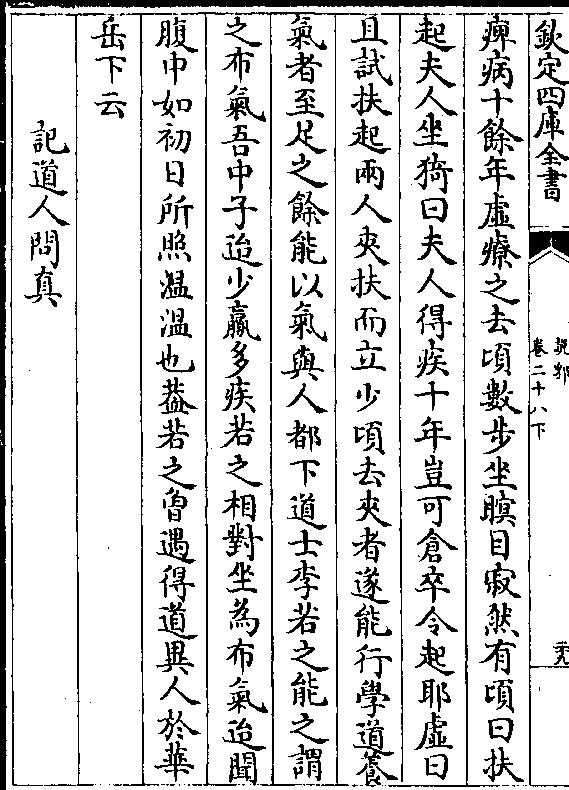 欽定四庫全書
說郛
卷二十八下
二十九
痺病十餘年虛療之去頃數步坐瞑目寂然有頃曰扶
起夫人坐猗曰夫人得疾十年豈可倉卒令起耶虛曰
且試扶起兩人夾扶而立少頃去夾者遂能行學道養
氣者至足之餘能以氣與人都下道士李若之能之謂
之布氣吾中子迨少羸多疾若之相對坐為布氣迨聞
腹中如初日所照溫溫也葢若之曾遇得道異人於華
岳下云
記道人問真